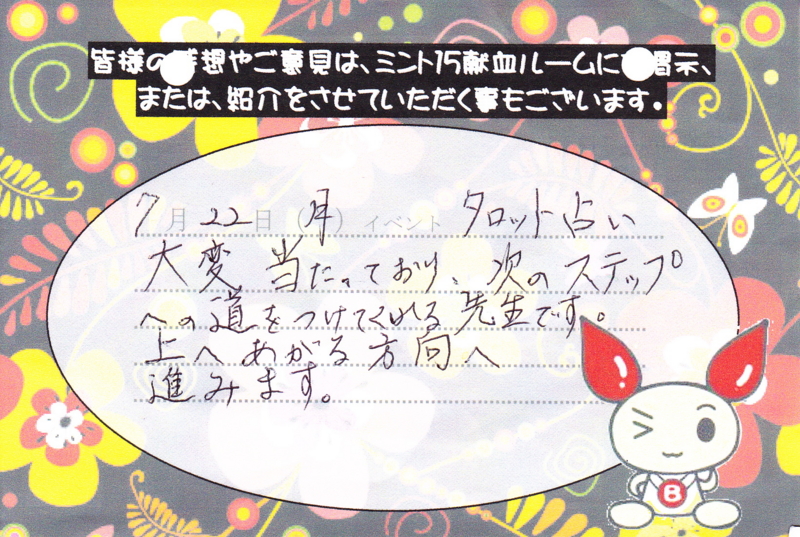 皆様の感想やご意見は、ミント15献血ルームに 掲示、
または、紹介をさせていただく事もございます。
7月22日（月）イベント タロット占い
大変 当たっており、次のステップ
への道をつけてくれる先生です。
上へあがる方向へ
進みます。
B